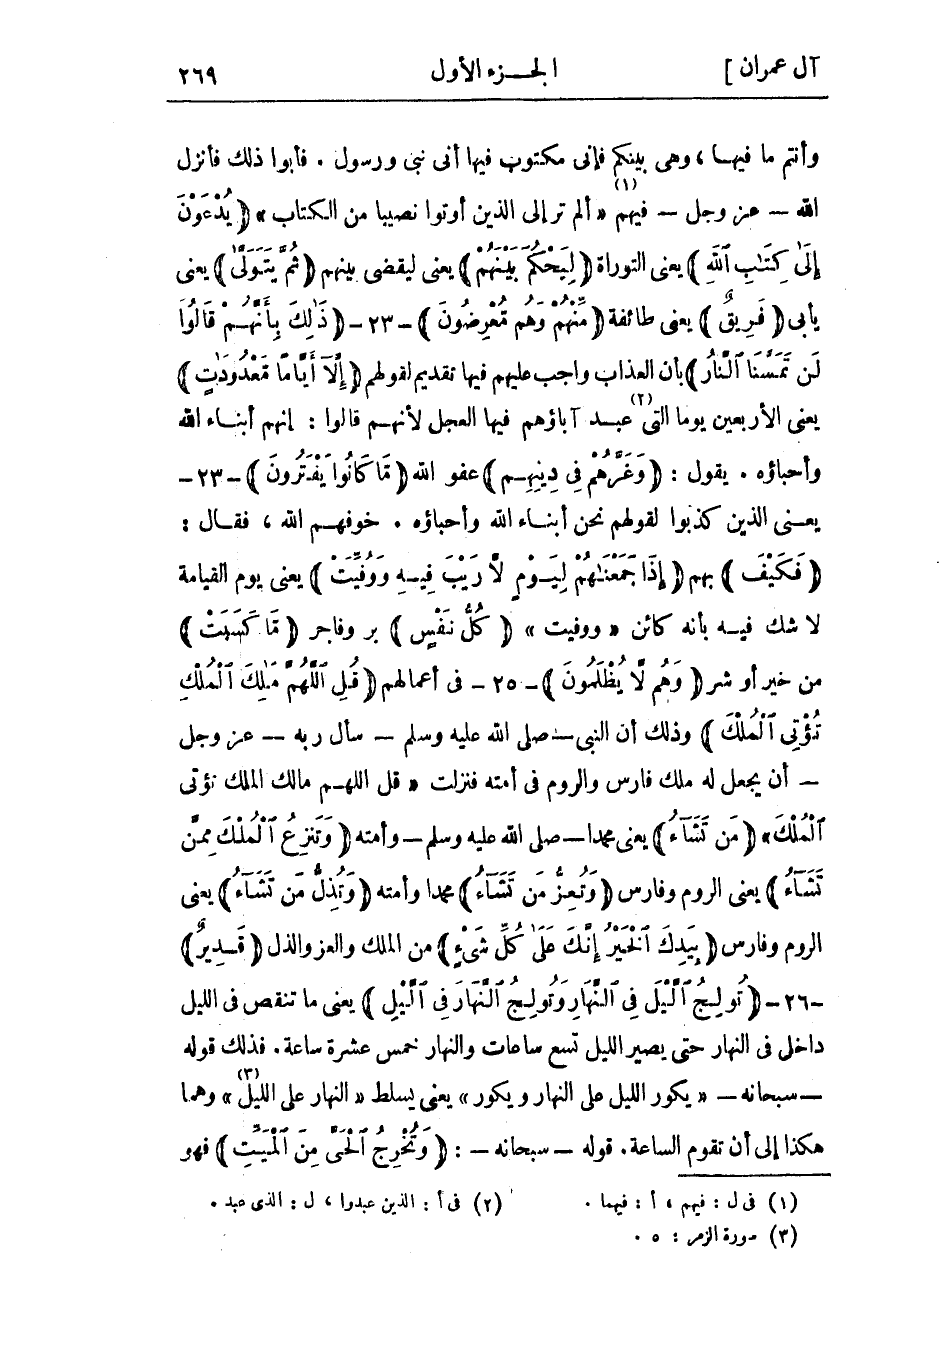 آل عمران ] الجزء الأول ٢٦٩
وأنتم ما فيها ، وهى بينكم فإنى مكتوب فيها أنى نبى ورسول . فأبوا ذلك فأنزل
الله — عز وجل — فيهم (١) « ألم تر إلى الذين أوتوا نصيبا من الكتاب » ( يُدْعَوْنَ
إِلَىٰ كِتَـٰبِ ٱللَّهِ ) يعنى التوراة ( لِيَحْكُمَ بَيْنَهُمْ ) يعنى ليقضى بينهم ( ثُمَّ يَتَوَلَّىٰ ) يعنى
يأبى ( فَرِيقٌ ) يعنى طائفة ( مِّنْهُمْ وَهُم مُّعْرِضُونَ ) -٢٣- ( ذَٰلِكَ بِأَنَّهُمْ قَالُوا
لَن تَمَسَّنَا ٱلنَّارُ ) بأن العذاب واجب عليهم فيها تقديم لقولهم ( إِلَّآ أَيَّامًا مَّعْدُودَٰتٍ )
يعنى الأربعين يوما التى (٢) عبد آباؤهم فيها العجل لأنهم قالوا : إنهم أبناء الله
وأحباؤه . يقول : ( وَغَرَّهُمْ فِى دِينِهِم ) عفو الله ( مَّا كَانُوا يَفْتَرُونَ ) -٢٣-
يعنى الذين كذبوا لقولهم نحن أبناء الله وأحباؤه . خوفهم الله ، فقال :
( فَكَيْفَ ) بهم ( إِذَا جَمَعْنَـٰهُمْ لِيَوْمٍ لَّا رَيْبَ فِيهِ وَوُفِّيَتْ ) يعنى يوم القيامة
لا شك فيه بأنه كائن « ووفيت » ( كُلُّ نَفْسٍ ) بر وفاجر ( مَّا كَسَبَتْ )
من خير أو شر ( وَهُمْ لَا يُظْلَمُونَ ) - ٢٥ - فى أعمالهم ( قُلِ ٱللَّهُمَّ مَـٰلِكَ ٱلْمُلْكِ
تُؤْتِى ٱلْمُلْكَ ) وذلك أن النبى — صلى الله عليه وسلم — سأل ربه — عز وجل
— أن يجعل له ملك فارس والروم فى أمته فنزلت « قل اللهم مالك الملك تؤتى
ٱلْمُلْكَ » ( مَن تَشَآءُ ) يعنى محمدا — صلى الله عليه وسلم — وأمته ( وَتَنزِعُ ٱلْمُلْكَ مِمَّن
تَشَآءُ ) يعنى الروم وفارس ( وَتُعِزُّ مَن تَشَآءُ ) محمدا وأمته ( وَتُذِلُّ مَن تَشَآءُ ) يعنى
الروم وفارس ( بِيَدِكَ ٱلْخَيْرُ إِنَّكَ عَلَىٰ كُلِّ شَىْءٍ ) من الملك والعز والذل ( قَدِيرٌ )
-٢٦- ( تُولِجُ ٱلَّيْلَ فِى ٱلنَّهَارِ وَتُولِجُ ٱلنَّهَارَ فِى ٱلَّيْلِ ) يعنى ما تنقص فى الليل
داخل فى النهار حتى يصير الليل تسع ساعات والنهار خمس عشرة ساعة . فذلك قوله
— سبحانه — « يكور الليل على النهار ويكور » يعنى يسلط « النهار على الليل (٣) » وهما
هكذا إلى أن تقوم الساعة . قوله — سبحانه — : ( وَتُخْرِجُ ٱلْحَىَّ مِنَ ٱلْمَيِّتِ ) فهو
(١) فى ل : فيهم ، أ : فيهما . (٢) فى أ : الذين عبدوا ، ل : الذى عبد .
(٣) سورة الزمر : ٥ .